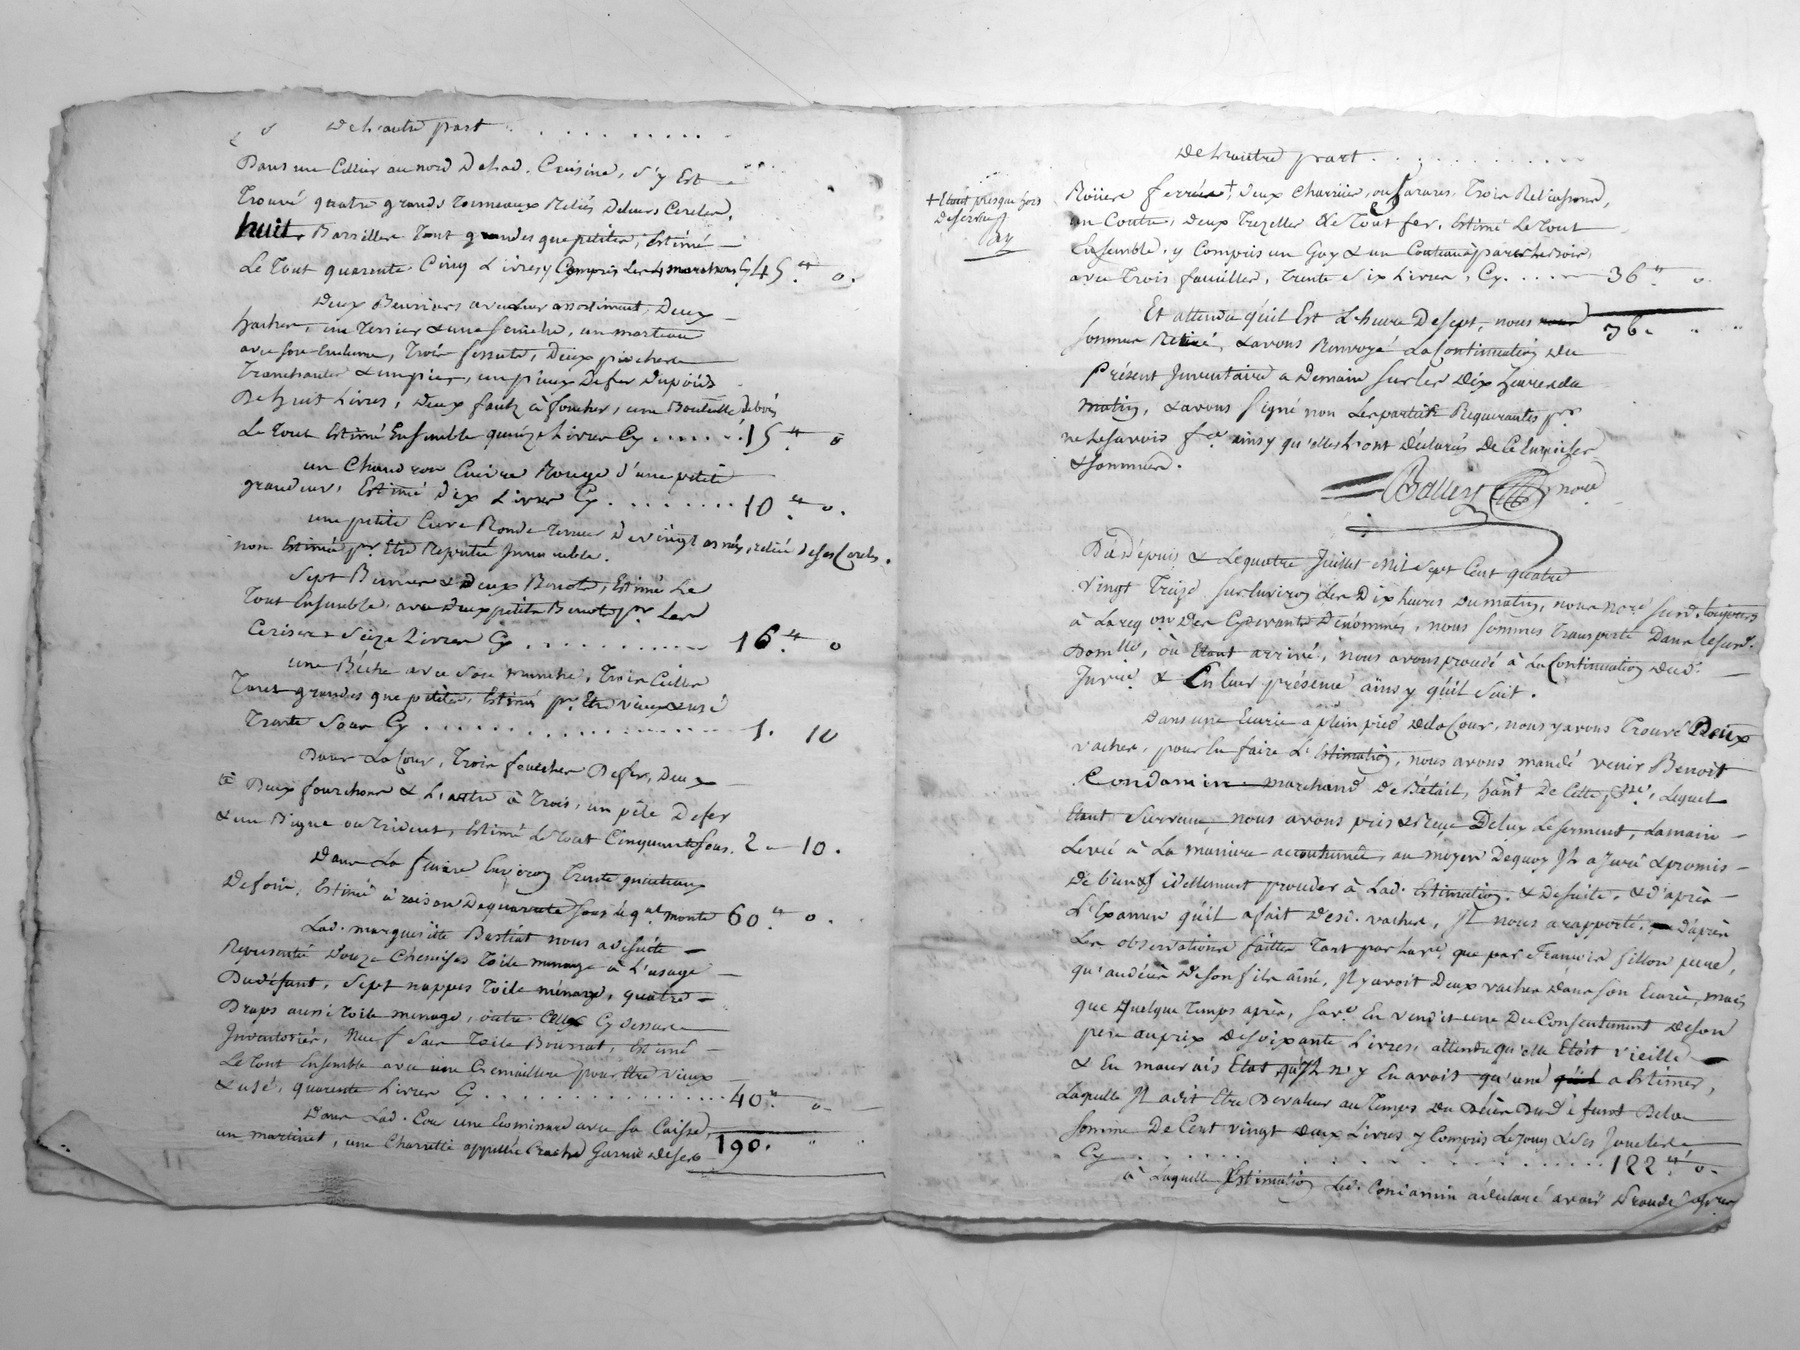 De L'autre part . . . . . . . . .
Dans une Cellier au nord De Lad. Cuisine, s'y Est
Trouvé quatre grands Tonneaux Reliés De leurs Cercles,
huit Barrilles Tant grandes que petites, Estimé
Le Tout quarente Cinq Livres y Compris Les 4 marchons Cy 45.ᵗᵗ o.
Deux Beurriers avec Leur assortiment, Deux
haches, une Terrier & une Serriche, un marteau
avec son Enclume, Trois fessoits, Deux pioches
Tranchantes & un pier, un pieux De fer Du poids
De huit Livres, Deux faulx à faucher, une Bouteille de bois
Le Tout Estimé Ensemble quinze Livres Cy . . . . . . 15ᵗᵗ o
un Chaudron Cuivre Rouge d'une petite
grandeur, Estimé Dix Livres Cy . . . . . . . . 10ᵗᵗ o.
une petite Cuve Ronde Tenue De vingt asnées, reliée de ses Cercles.
non Estimée pʳ Etre Reputée Immeuble.
Sept Bennes & Deux Benots, Estimé Le
Tout Ensemble avec Deux petits Benots pʳ Les
Cerises Seize Livres Cy . . . . . . . . . . . 16.ᵗᵗ o
une Bêche avec Son manche, Trois
Tant grandes que petites, Estimé pʳ Etre vieux & usé
Trente Sous Cy . . . . . . . . . . . . . . . . 1. 10
Dans La Cour, Trois fourches De fer, Deux
à Deux fourchons & L'autre à Trois, un pèle De fer
& un Bigne ou Trident, Estimé Le Tout Cinquante Sous. 2 - 10.
Dans La fenière Environ Trente quintaux
De foin, Estimé à raison De quarante Sous le qᵃˡ monte 60ᵗᵗ o.
Lad. marguerite Bastiat nous a desuite
Representé Douze Chemises Toile menage à L'usage
Du défunt, Sept nappes Toile ménage, quatre
Draps aussi Toile menage, outre Celles Cy Dessus
Inventoriés, Neuf Sacs Toile Bourrat, Estimé
Le Tout Ensemble avec une Cremaillere pour Etre vieux
& usé, quarente Livres Cy . . . . . . . . . . . . . . . 40ᵗᵗ o
Dans Lad. Cour une avec sa Caisse,
190.
un martinet, une Charrette appellée Garnie de ses
De L'autre part . . . . . . . . . . . .
+ Etant presque hors
De service
Bay
Roües ferrées + Deux Charrües, ou araires, Trois Reliassons,
un Coutre, Deux Trezelles & le Tout fer, Estimé Le Tout
Ensemble, y Compris un Goy & un Couteau à parer Le Bois,
avec Trois faucilles, Trente Six Livres, Cy. . . . . 36ᵗᵗ o.
36.
Et attendu qu'il Est L'heure De Sept, nous nous
Sommes Retiré, & avons Renvoyé La Continuation Du
Présent Inventaire a Demain sur les Dix heures du
matin, & avons Signé non Les parties Requerantes pʳ
ne Le Savoir fᵉ ainsy qu'elles L'ont Déclarés De Ce Enquises
& Sommées.
Balley noʳᵉ
Du Depuis & Le quatre Juillet Mil Sept Cent quatre
vingt Treize, sur Environ Les Dix heures du matin, nous noʳᵉ Susd. toujours
à La reqᵒⁿ Des Exponants Dénommés, nous Sommes Transporté Dans le Susd.
Domˡˡᵉ, où Etant arrivé, nous avons procédé à La Continuation Dud.
Invʳᵉ & En Leur présence ainsy qu'il Suit.
Dans une Ecurie a plein pied De la Cour, nous y avons Trouvé Deux
vaches, pour En faire L'Estimation, nous avons mandé venir Benoit
Condamin marchand De Bétail, haᵗ De Cette psˢᵉ, Lequel
Etant Survenu, nous avons pris & Reçu De Luy Le Serment, La main
Levée à La maniere accoutumée, au moyen De quoy Il a Juré & promis
De bien & fidellement proceder à Lad. Estimation & De Suite, & d'après
L'Examen qu'il a fait Desd. vaches, Il nous a rapporté, D'après
Les observations faittes Tant par La veᵛᵉ que par François Sillon pere,
qu'au décès De Son fils ainé, Il y avoit Deux vaches Dans Son Ecurie, mais
que quelque Temps après, Sa vᵉ En vendit une Du Consentement De Son
pere au prix De Soixante Livres, attendu qu'elle Etoit vieille
& En mauvais Etat, qu'Il n'y En avoit qu'une qu'il a Estimer,
Laquelle Il a dit Etre De valeur au Temps Du Décès Du Défunt De la
Somme De Cent vingt Deux Livres y Compris Le Joug & Ses Jouclets
Cy . . . . . . . . . . . . . . . . 122ᵗᵗ o.
à Laquelle Estimation Led. Condamin a declaré avoir